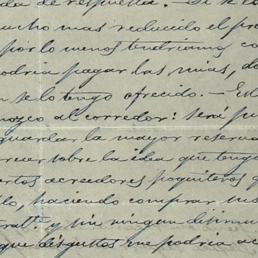 da de respuesta. — Si se lo
ucho mas reducido el pre
por lo menos tendriamos co
podria pagar las mias, de
n se lo tengo ofrecido. — Est
nozco al corredor: será pu
guardar la mayor reserva
recer sobre la idea que teng
ertos acreedores poquiteros q
lo, haciendo comprar sus
trat.º y sin ningun disimu
que disgustos me podria ac